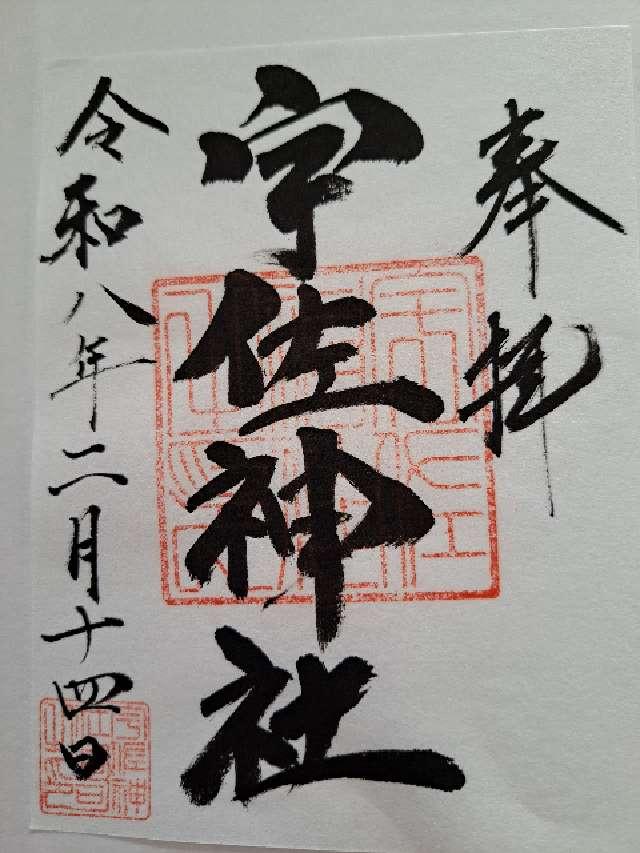 奉拝
宇佐神社
令和八年二月十四日